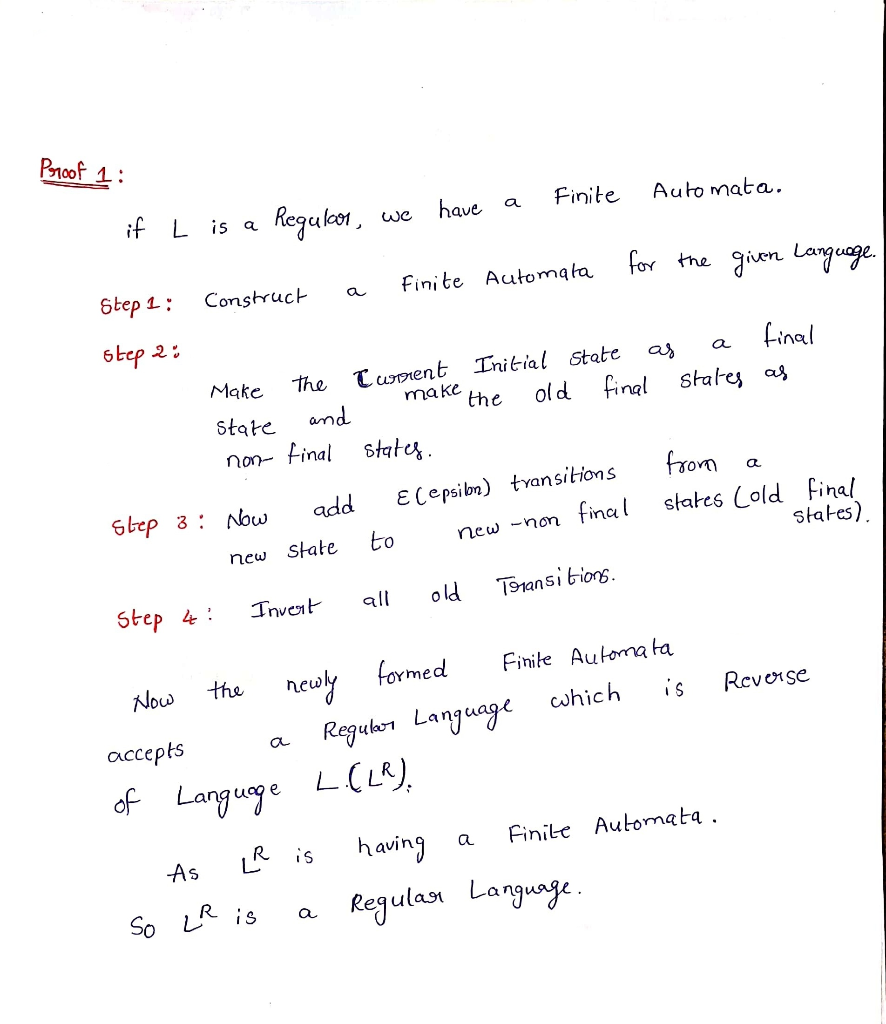 Proof 1:
if L is a Regular, we have a Finite Automata.
Step 1: Construct a Finite Automata for the given Language.
Step 2:
Make the Current Initial state as a final
state and make the old final states as
non-final states.
Step 3: Now add ε(epsilon) transitions from a
new state to new-non final states (old final
states).
Step 4: Invert all old Transitions.
Now the newly formed Finite Automata
accepts a Regular Language which is Reverse
of Language L.(Lᴿ).
As Lᴿ is having a Finite Automata.
So Lᴿ is a Regular Language.